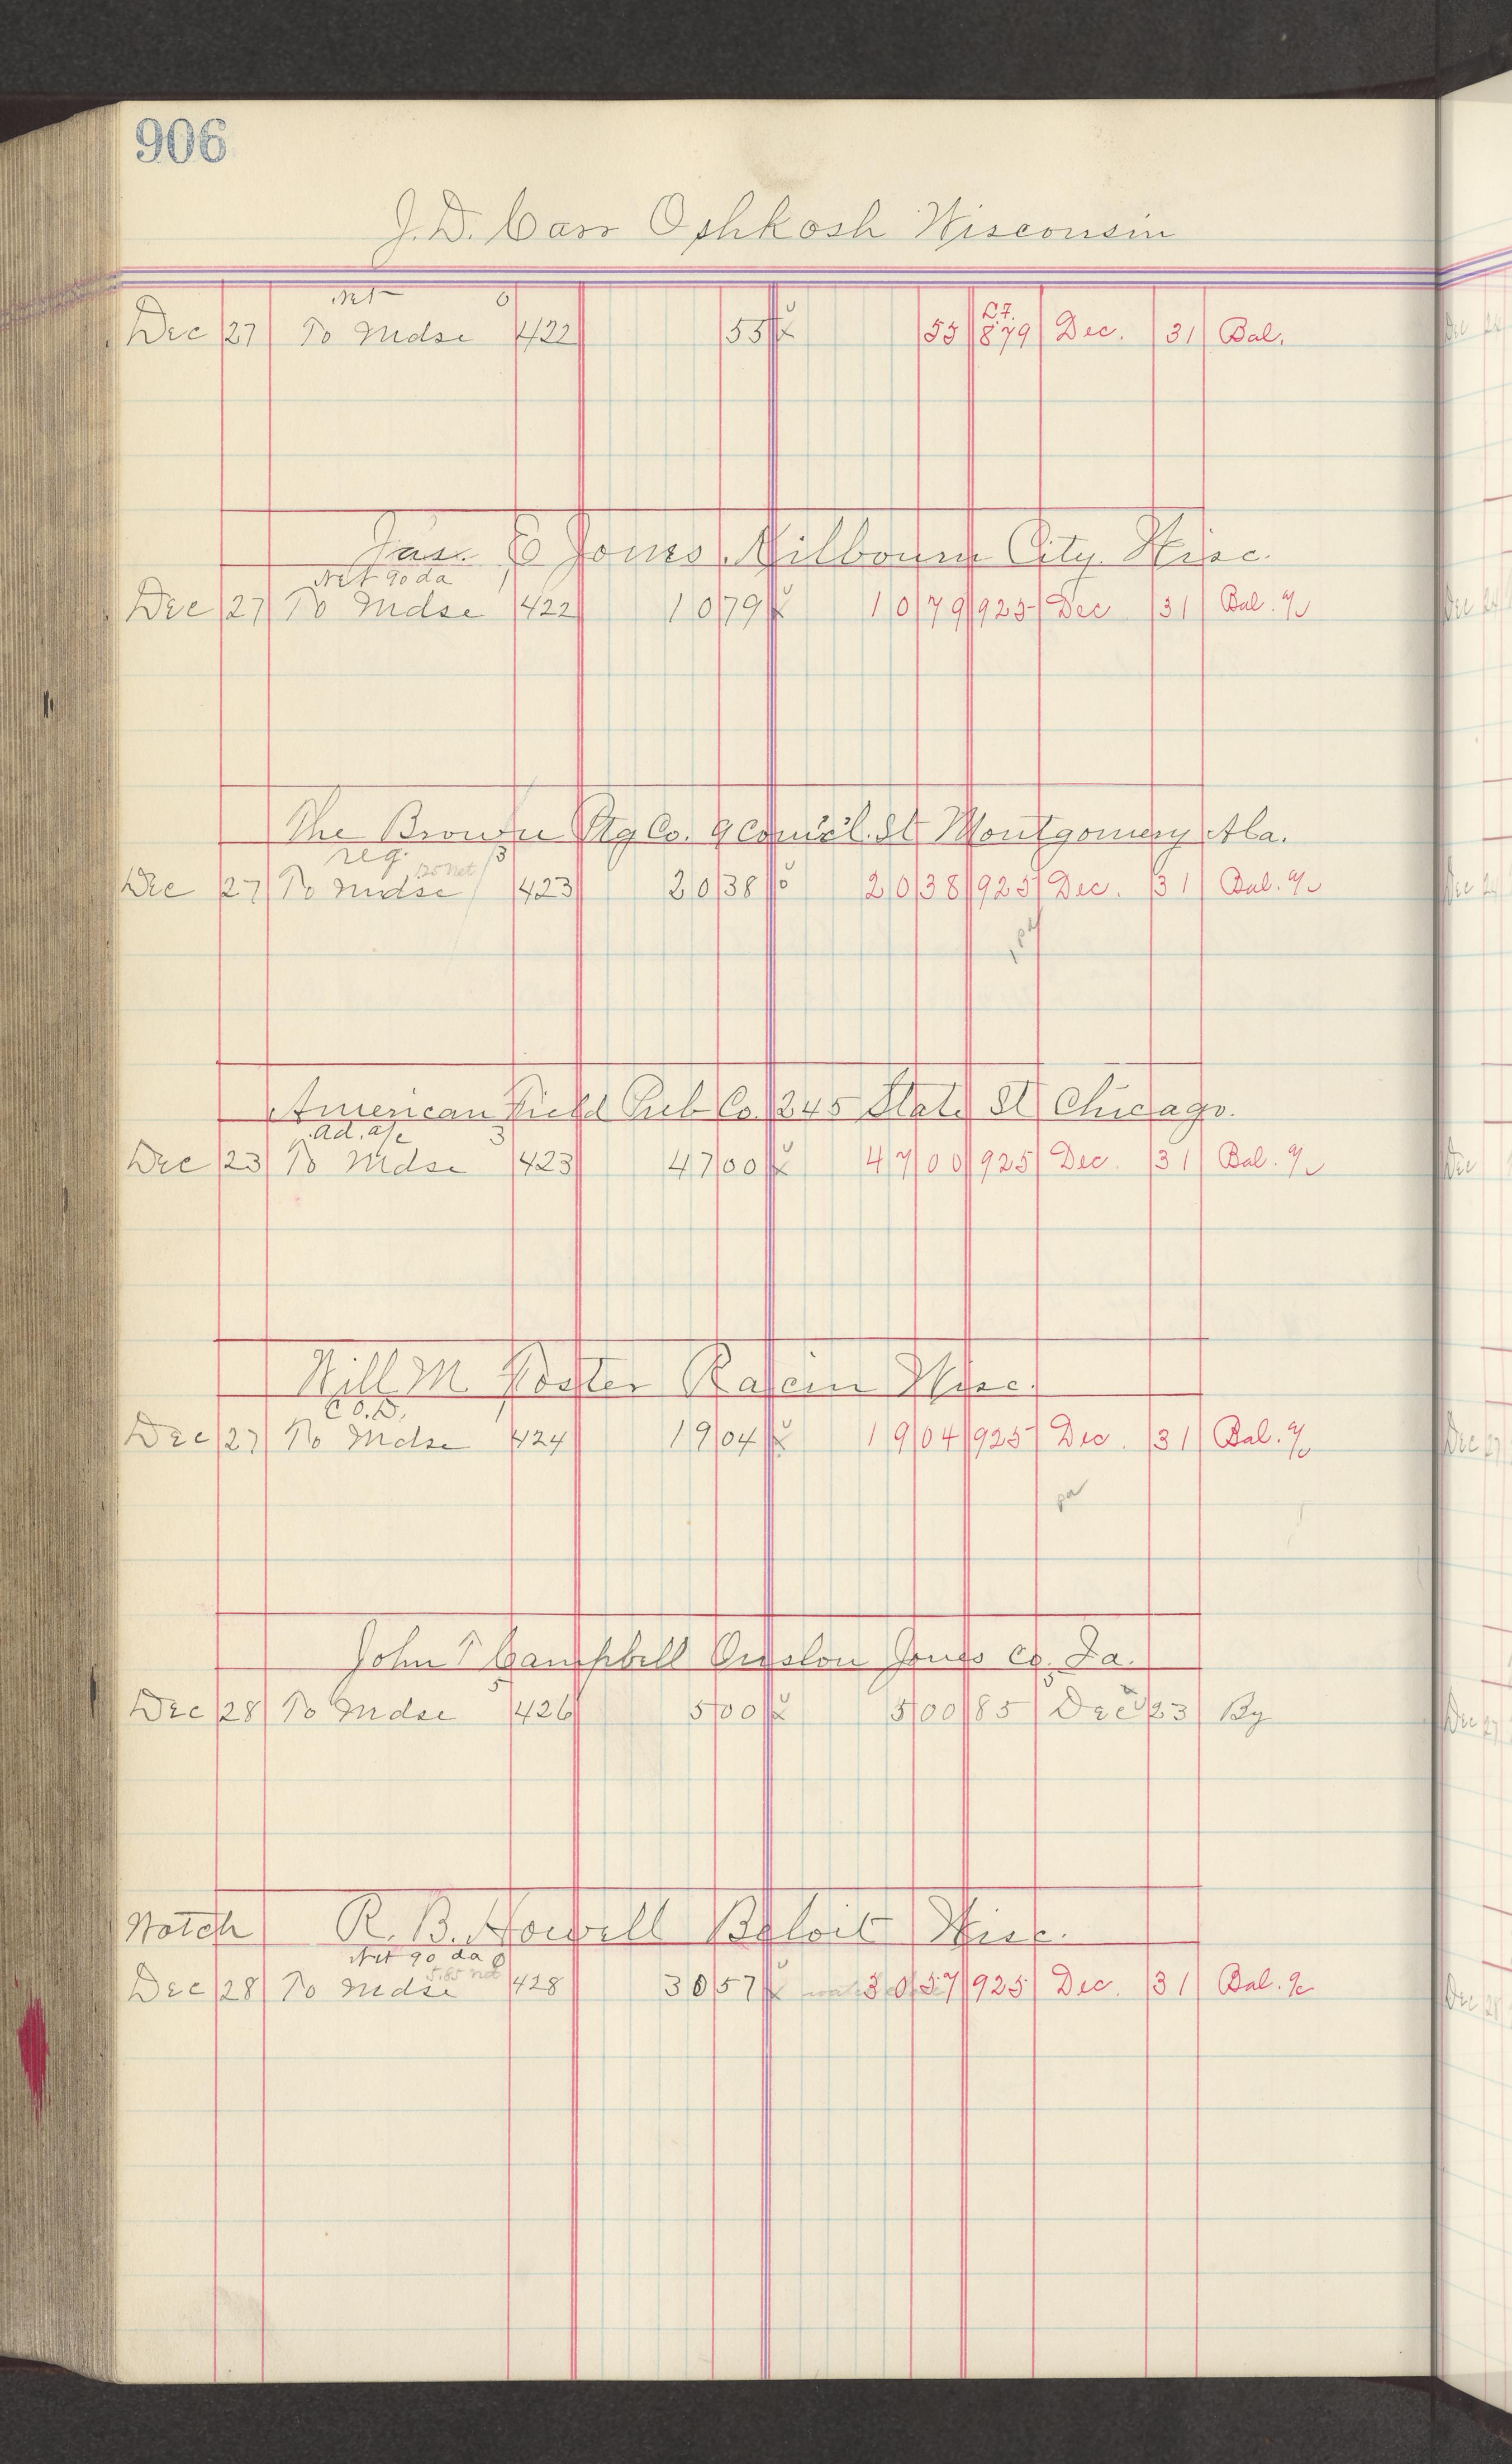 906
J.D. Carr Oshkosh Wisconsin
net 0 L.F.
Dec 27 To Mdse 422 55 55 879 Dec. 31 Bal.
Jas. E Jones. Kilbourn City. Wisc.
Net 90 da 1
Dec 27 To Mdse 422 10 79 10 79 925 Dec 31 Bal. a/c
The Brown Ptg Co. 9 Com'c'l. St Montgomery Ala.
reg. 3
Dec 27 To Mdse 423 20 38 20 38 925 Dec. 31 Bal. a/c
American Field Pub Co. 245 State St Chicago.
ad. a/c 3
Dec 23 To Mdse 423 47 00 47 00 925 Dec. 31 Bal. a/c
Will M. Foster Racin Wisc.
C.O.D. 1
Dec 27 To Mdse 424 19 04 19 04 925 Dec. 31 Bal. a/c
John T Campbell Onslow Jones Co. Ia.
5 5
Dec 28 To Mdse 426 5 00 5 00 85 Dec 23 By
Watch R. B. Howell Beloit Wisc.
Net 90 da 0
5.85 net
Dec 28 To Mdse 428 30 57 30 57 925 Dec. 31 Bal. a/c